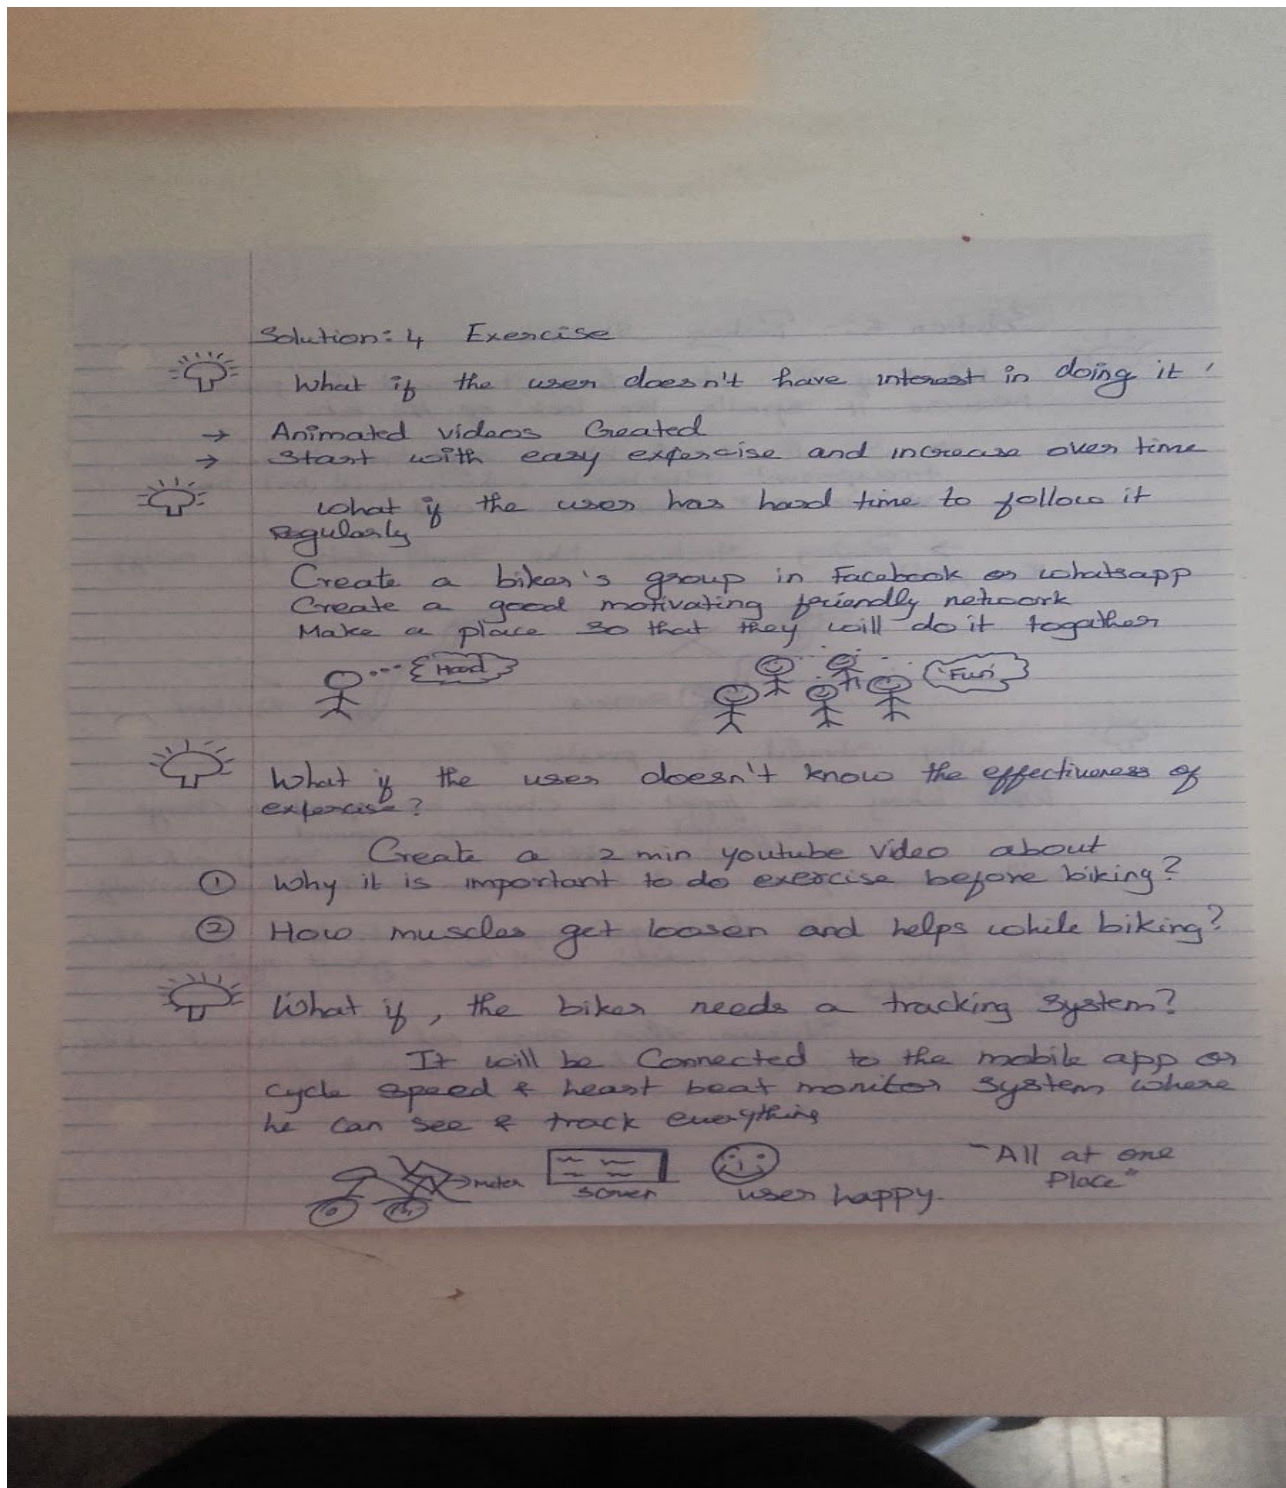 Solution: 4 Exercise
What if the user doesn't have interest in doing it
→ Animated videos Created
→ Start with easy expercise and increase over time
What if the user has hard time to follow it
regularly
Create a biker's group in Facebook or whatsapp
Create a good motivating friendly network
Make a place so that they will do it together
Hard
"Fun"
What if the user doesn't know the effectiveness of
expercise?
Create a 2 min youtube video about
① Why it is important to do exercise before biking?
② How muscles get loosen and helps while biking?
What if, the biker needs a tracking system?
It will be Connected to the mobile app or
cycle speed & heart beat monitor system where
he can see & track everything
→ meter
screen
user happy.
"All at one
Place"